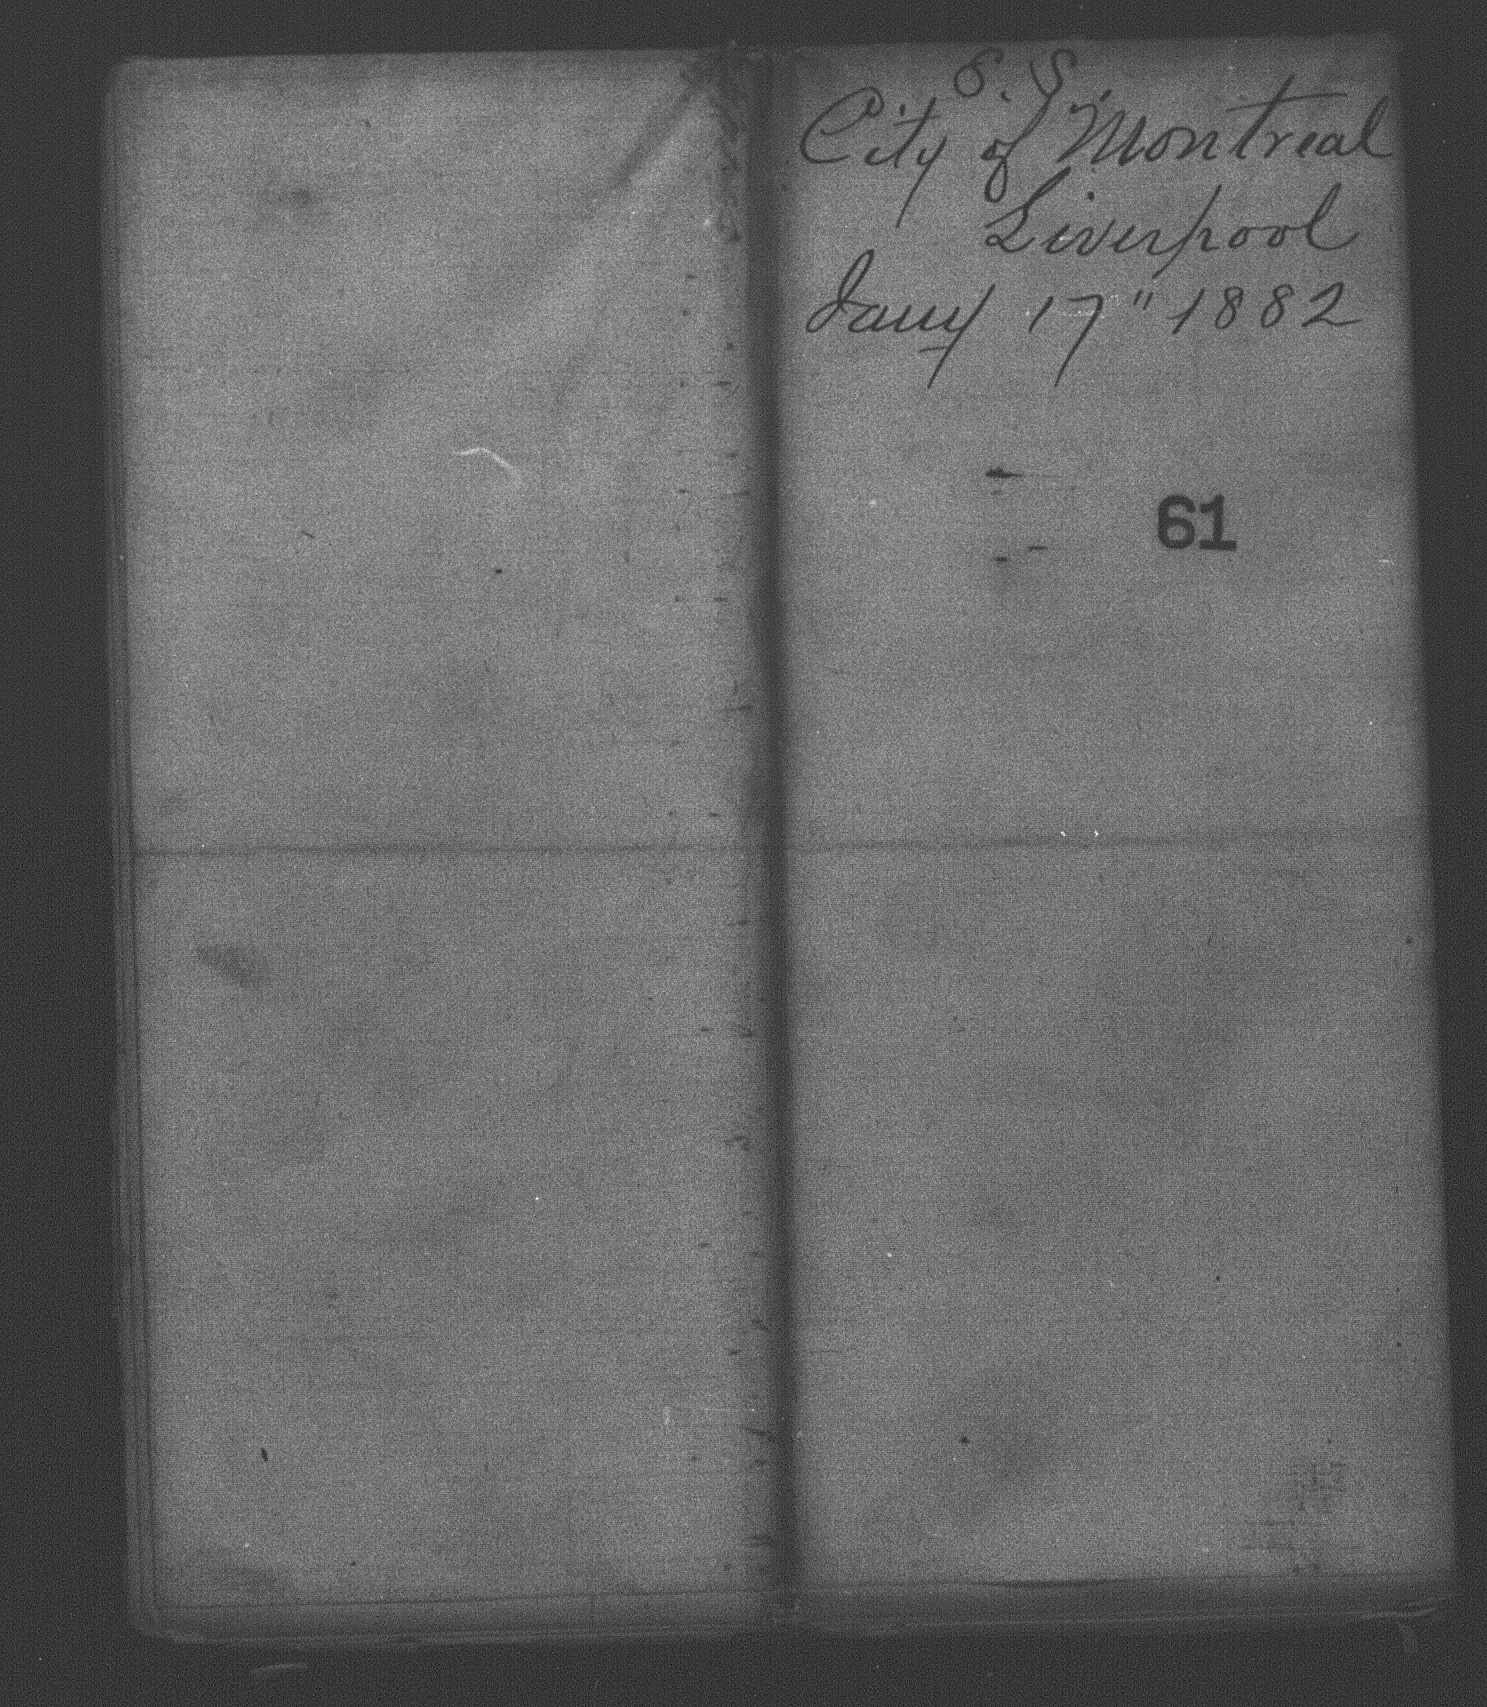 S. S.
City of Montreal
Liverpool
Jany 17" 1882
61